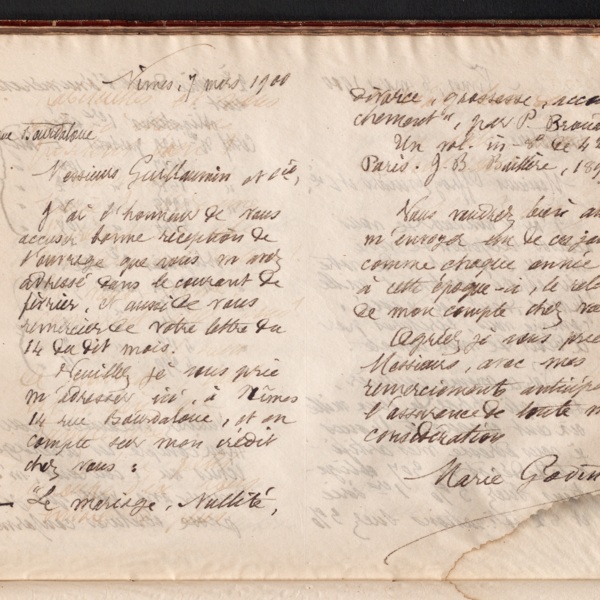 Nîmes, 7 mars 1900
rue Bourdaloue
Messieurs Guillaumin et Cie,
J'ai l'honneur de vous
accuser bonne réception de
l'ouvrage que vous m'avez
adressé dans le courant de
février, et aussi de vous
remercier de votre lettre du
14 du dit mois.
Veuillez je vous prie
m'adresser ici, à Nîmes
14 rue Bourdaloue, et en
compte sur mon crédit
chez vous :
— "Le mariage, Nullité,
divorce, grossesse, accou
chement", par P. Brouar
Un vol. in-8° de 4
Paris. J. B. Baillère, 189
Vous voudrez bien au
m'envoyer un de ces jou
comme chaque année
à cette époque-ci, le rele
de mon compte chez vo
Agréez je vous prie
Messieurs, avec mes
remerciements anticipé
l'assurance de toute m
considération
Marie Godin